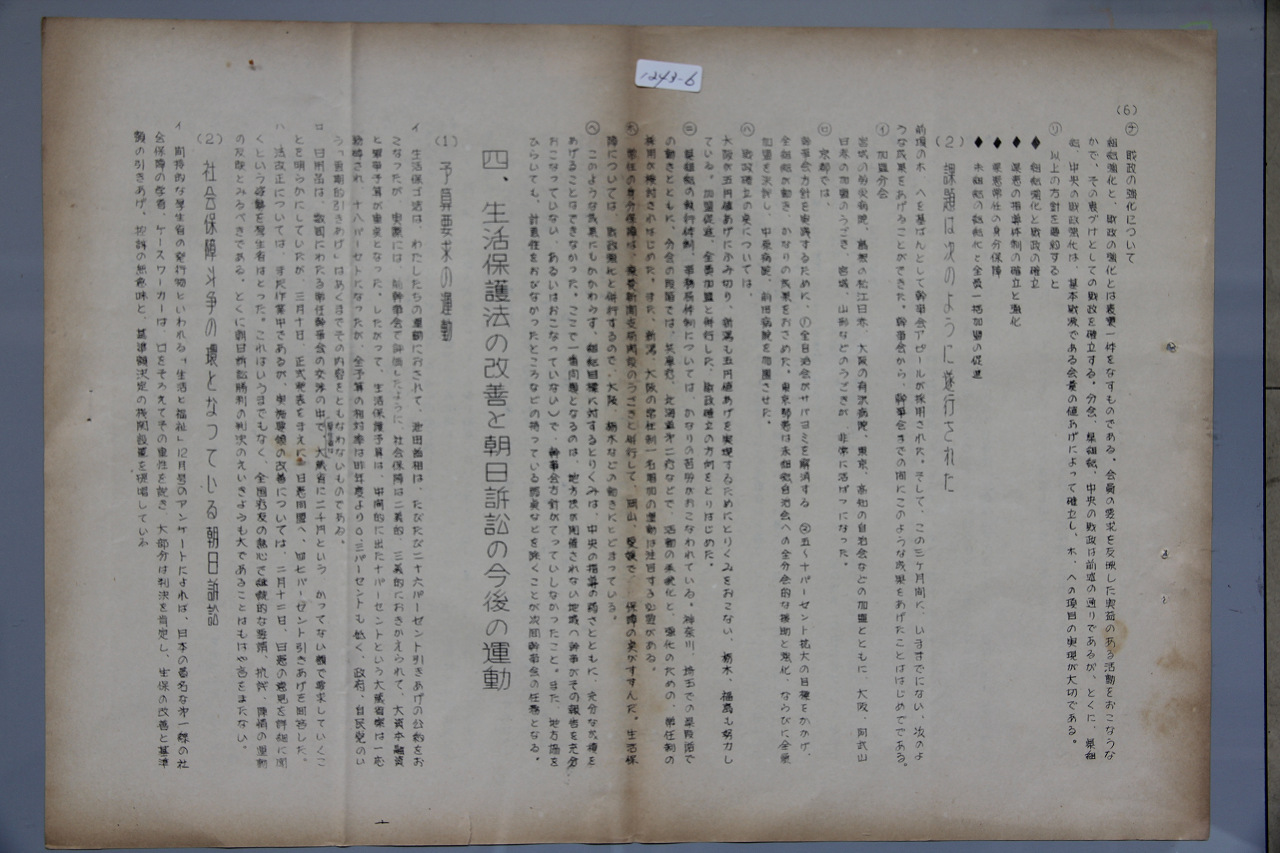 1243-6
(6)
㋠ 財政の強化について
組織強化と、財政の強化とは表裏一体をなすものである。会員の要求を反映した実益のある活動をおこなうな
かで、その裏づけとしての財政を確立する。分会、県組織、中央の財政は前述の通りであるが、とくに、県組
織、中央の財政強化は、基本財源である会費の値あげによって確立し、ホ、ヘの項目の実現が大切である。
㋷ 以上の方針を要約すると
◆ 組織強化と財政の確立
◆ 県患の指導体制の確立と強化
◆ 県患常任の身分保障
◆ 未組織の組織化と全員一括加盟の促進
(2) 課題は次のように遂行された
前項のホ、ヘを基ばんとして幹事会アピールが採用された。そして、この三ヶ月間に、いままでにない、次のよ
うな成果をあげることができた。幹事会から、幹事会までの間にこのような成果をあげたことははじめてである。
㋑ 加盟分会
宮城の労災病院、島根の松江日赤、大阪の有沢病院、東京、高知の自治会などの加盟とともに、大阪、阿武山
日赤の加盟のうごき、宮城、山形などのうごきが、非常に活ぱつになった。
㋺ 京都では、
幹事会方針を実践するために、①全自治会がサバヨミを解消する ②五〜十パーセント拡大の目標をかかげ、
全組織が動き、かなりの成果をおさめた。東京都患は未組織自治会への全分会的な援助と強化、ならびに全員
加盟を決議し、中泉病院、前田病院を加盟させた。
㋩ 財政確立の点については、
大阪が五円値あげにふみ切り、新潟も五円値あげを実現するためにとりくみをおこない、栃木、福島も努力し
ている。加盟促進、全員加盟と併行した、財政確立の方向をとりはじめた。
㋥ 県組織の執行体制、事務局体制については、かなりの苦労がおこなわれている。神奈川、埼玉での県段階で
の動きとともに、分会の段階では、
採用が検討されはじめた。また、新潟、大阪の常任制一名増加の運動は注目する必要がある。
㋭ 常任の身分保障は、
障については、財政強化と併行するので、大阪、栃木などの動きにとどまっている。
㋬ このような成果にもかかわらず、組織目標に対するとりくみは、中央の指導の弱さとともに、充分な成績を
あげることはできなかった。ここで一番問題となるのは、地方ブロックが開催されない地域へ幹事がその報告を充分
おこなっていない、あるいはおこなっていない)で、幹事会方針がてっていしなかったこと。また、地方協を
ひらいても、計画性をおかなかったところなどの持っている弱点などを除くことが次期幹事会の任務となる。
四、生活保護法の改善と朝日訴訟の今後の運動
(1) 予算要求の運動
イ 生活保ゴ法は、わたしたちの運動におされて、池田首相は、たびたび二十六パーセント引きあげの公約をお
こなったが、実際には、前幹事会で評価したように、社会保障は二義的、三義的におきかえられて、大資本融資
と軍事予算が重点となった。したがって、生活保護予算は、中間的に出た十パーセントという大蔵省案は一応
動搖され、十八パーセントになったが、全予算の相対率は昨年度より〇・三パーセントも低く、政府、自民党のい
う「画期的引きあげ」はあくまでその内容をともなわないものである。
ロ 日用品は、数回にわたる常任幹事会の交渉の中で、大蔵省に二千円という、かつてない額で要求していくこ
とを明らかにしていたが、三月十日、正式発表をまえに日患同盟へ、四七パーセント引きあげを回答した。
ハ 法改正については、まだ作業中であるが、実施要領の改善については、二月十二日、日患の意見を詳細に聞
くという姿勢を厚生省はとった。これはいうまでもなく、全国療友の熱心で継続的な要請、抗議、陳情の運動
の反映とみるべきである。とくに朝日訴訟勝利の判決のえいきょうも大であることはもはや言をまたない。
(2) 社会保障斗争の環となっている朝日訴訟
イ 間接的な厚生省の発行物といわれる「生活と福祉」12月号のアンケートによれば、日本の著名な第一線の社
会保障の学者、ケースワーカーは、口をそろえてその重性を説き、大部分は判決を肯定し、生保の改善と基準
額の引きあげ、控訴の無意味と、基準額決定の機関設置を提唱している